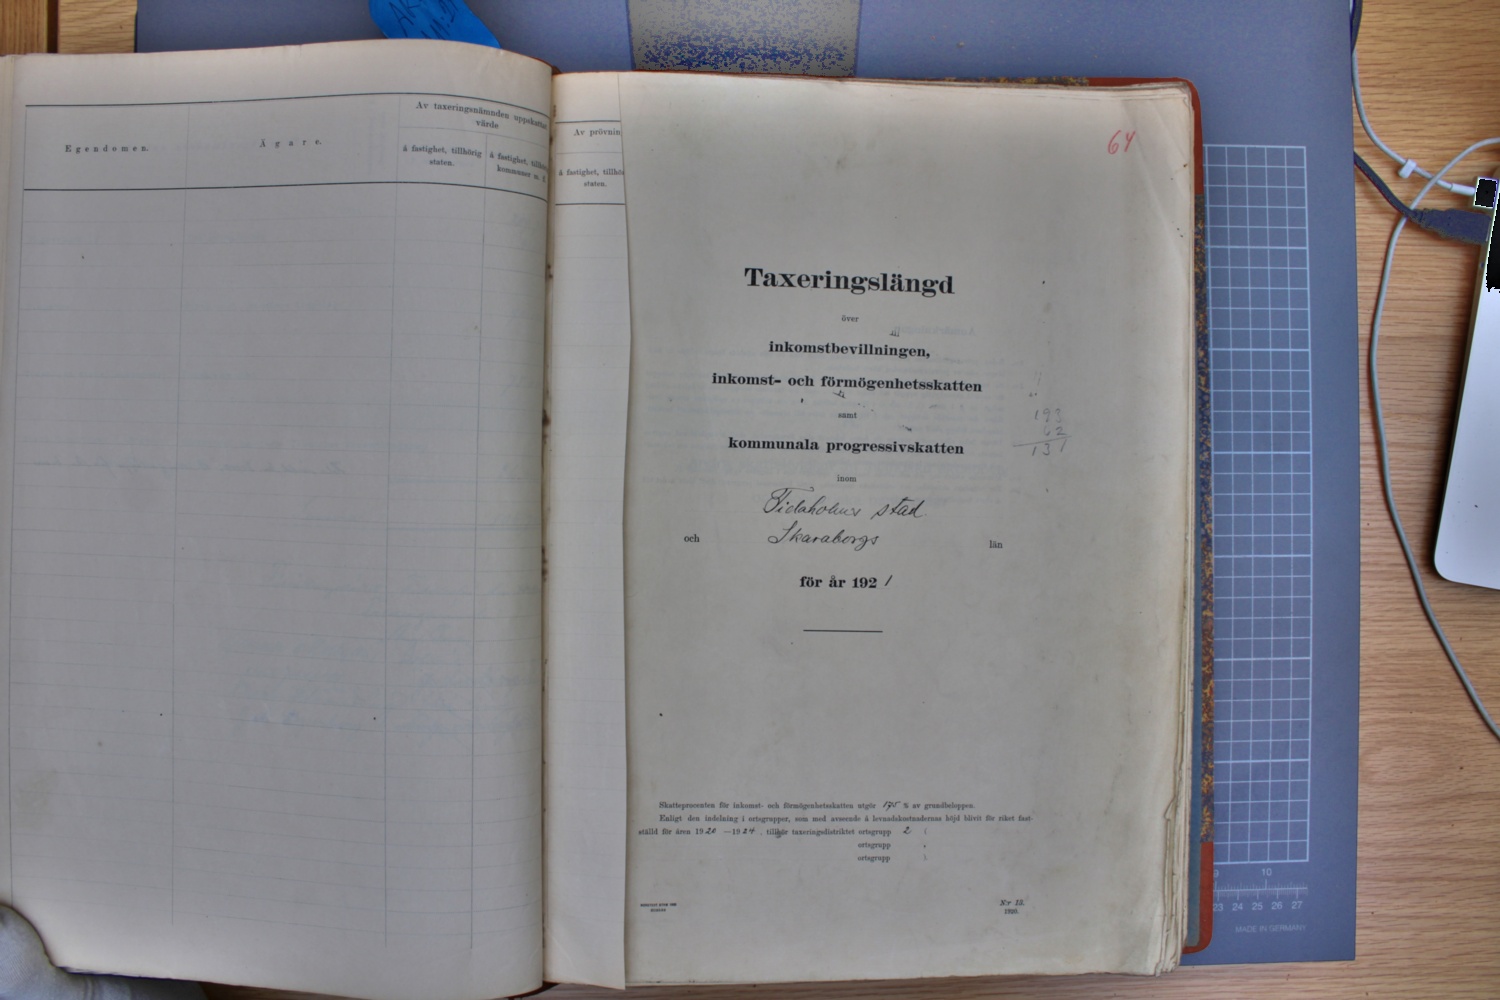 Av taxeringsnämnden uppskattat
värde
Egendomen.
Ägare.
å fastighet, tillhörig
staten.
å fastighet, tillhö
kommuner m. f
Av prövnin
å fastighet, tillhö
staten.
64
Taxeringslängd
över
inkomstbevillningen,
inkomst- och förmögenhetsskatten
samt
kommunala progressivskatten
193
62
131
inom
Tidaholms stad
och Skaraborgs län
för år 1921
Skatteprocenten för inkomst- och förmögenhetsskatten utgör 175 % av grundbeloppen.
Enligt den indelning i ortsgrupper, som med avseende å levnadskostnadernas höjd blivit för riket fast-
ställd för åren 1920—1924, tillhör taxeringsdistriktet ortsgrupp 2
ortsgrupp
ortsgrupp
N:r 12.
1920.
9 10
23 24 25 26 27
MADE IN GERMANY